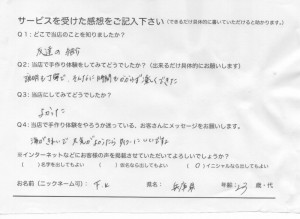 サービスを受けた感想をご記入下さい (できるだけ具体的に書いていただけると助かります。)
Q1:どこで当店のことを知りましたか?
友達の紹介
Q2:当店で手作り体験をしてみてどうでしたか?(出来るだけ具体的にお願いします)
説明も丁寧で そんなに時間もかからず楽しくできた
Q3:当店にしてみてどうでしたか?
よかった
Q4:当店で手作り体験をやろうか迷っている、お客さんにメッセージをお願いします。
海がきれいで 天気がよかったら
※インターネットなどにお客様の声を掲載させていただいてよろしいでしょうか?
( )名字を出してもよい ( )仮名なら出してもよい (○)イニシャルなら出してもよい
お名前(ニックネーム可): 県名: 兵庫県 年齢: 歳・代